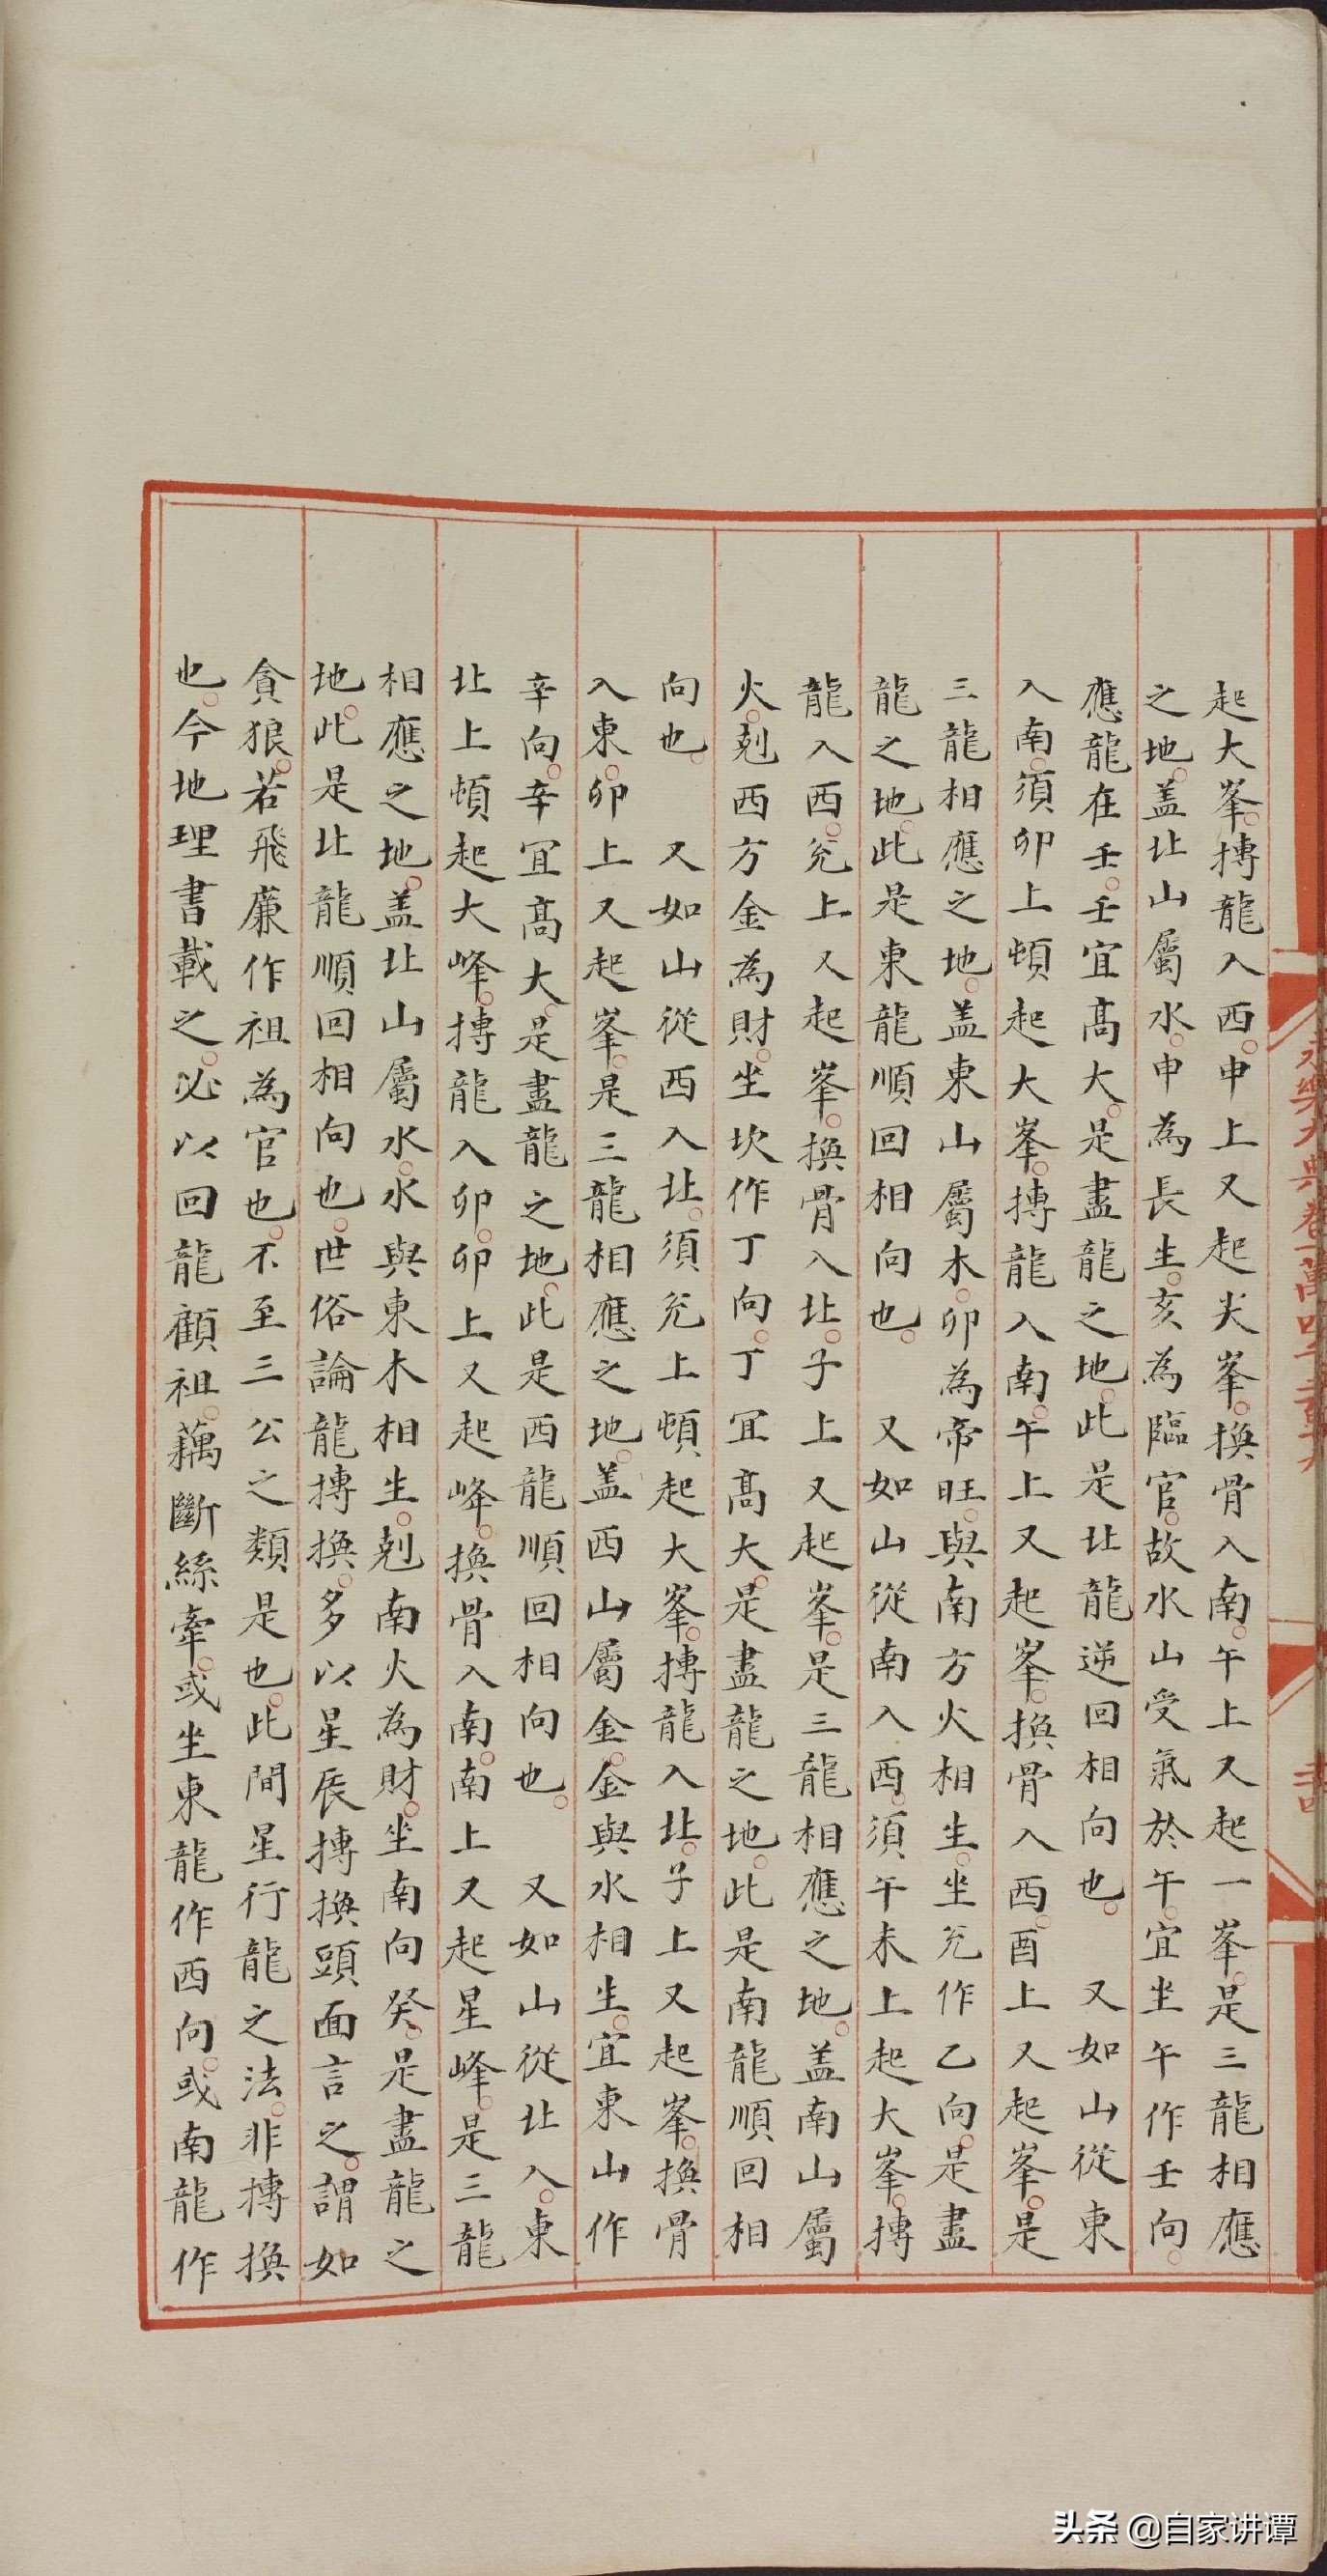 起大峯搏龍入西申上又起尖峯換骨入南午上又起一峯是三龍相應
之地盖北山屬水申為長生亥為臨官故水山受氣於午宜坐午作壬向
應龍在壬壬宜髙大是盡龍之地此是北龍逆回相向也　又如山從東
入南須卯上頓起大峯搏龍入南午上又起峯換骨入西酉上又起峯是
三龍相應之地盖東山屬木卯為帝旺與南方火相生坐兊作乙向是盡
龍之地此是東龍順回相向也　又如山從南入西須午未上起大峯搏
龍入西兊上又起峯換骨入北子上又起峯是三龍相應之地盖南山屬
火剋西方金為財坐坎作丁向丁宜髙大是盡龍之地此是南龍順回相
向也　又如山從西入北須兊上頓起大峯搏龍入北子上又起峯換骨
入東卯上又起峯是三龍相應之地盖西山屬金金與水相生宜東山作
辛向辛宜髙大是盡龍之地此是西龍順回相向也　又如山從北入東
北上頓起大峰搏龍入卯卯上又起峰換骨入南南上又起星峰是三龍
相應之地盖北山屬水水與東木相生剋南火為財坐南向癸是盡龍之
地此是北龍順回相向也世俗論龍搏換多以星辰搏換頭面言之謂如
貪狼若飛廉作祖為官也不至三公之類是也此間星行龍之法非搏換
也今地理書載之必以回龍顧祖藕斷絲牽或坐東龍作西向或南龍作
永樂大典卷一萬四千二百十九
頭条 @自家讲谭